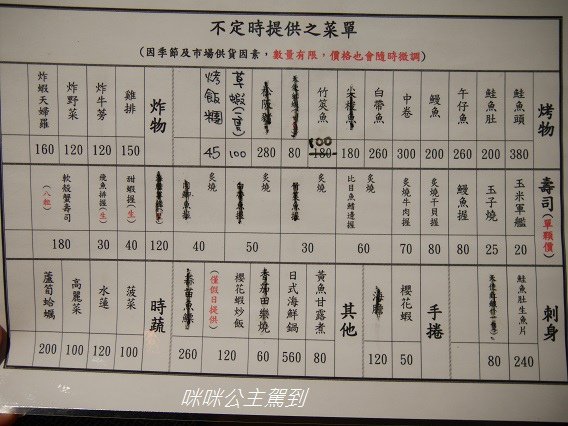 不定時提供之菜單
(因季節及市場供貨因素，數量有限，價格也會隨時微調)
烤物
鮭魚頭 380
鮭魚肚 260
午仔魚 200
鰻魚 200
中卷 300
白帶魚 260
180
竹筴魚 180 100
80
280
草蝦(二隻) 100
烤飯糰 45
炸物
雞排 150
炸牛蒡 120
炸野菜 120
炸蝦天婦羅 160
壽司(單顆價)
玉米軍艦 20
玉子燒 25
鰻魚握 80
炙燒干貝握 80
炙燒牛肉握 70
炙燒比目魚鰭邊握 60
炙燒 30
炙燒 50
炙燒 40
120
甜蝦握(生) 40
(生) 30
軟殼蟹壽司(八粒) 180
刺身
鮭魚肚生魚片 240
80
手捲
櫻花蝦 50
120
其他
黃魚甘露煮 80
日式海鮮鍋 560
60
櫻花蝦炒飯 120
(僅假日提供)
260
時蔬
菠菜 100
水蓮 120
高麗菜 100
蘆筍蛤蠣 200
咪咪公主駕到